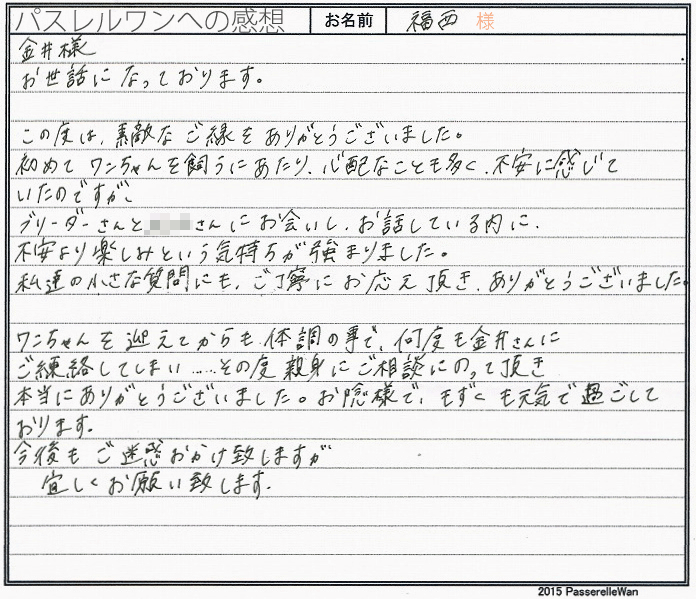 パスレルワンへの感想 お名前 福西 様
金井様
お世話になっております。
この度は、素敵なご縁をありがとうございました。
初めてワンちゃんを飼うにあたり、心配なことも多く、不安に感じて
いたのですが、
ブリーダーさんと さんにお会いし、お話している内に、
不安より楽しみという気持ちが強まりました。
私達の小さな質問にも、ご丁寧にお応え頂き、ありがとうございました。
ワンちゃんを迎えてからも、体調の事で、何度も金井さんに
ご練絡してしまい……その度親身にご相談にのって頂き
本当にありがとうございました。お陰様で、もずくも元気で過ごして
おります。
今後もご迷惑おかけ致しますが
宜しくお願い致します。
2015 PasserelleWan